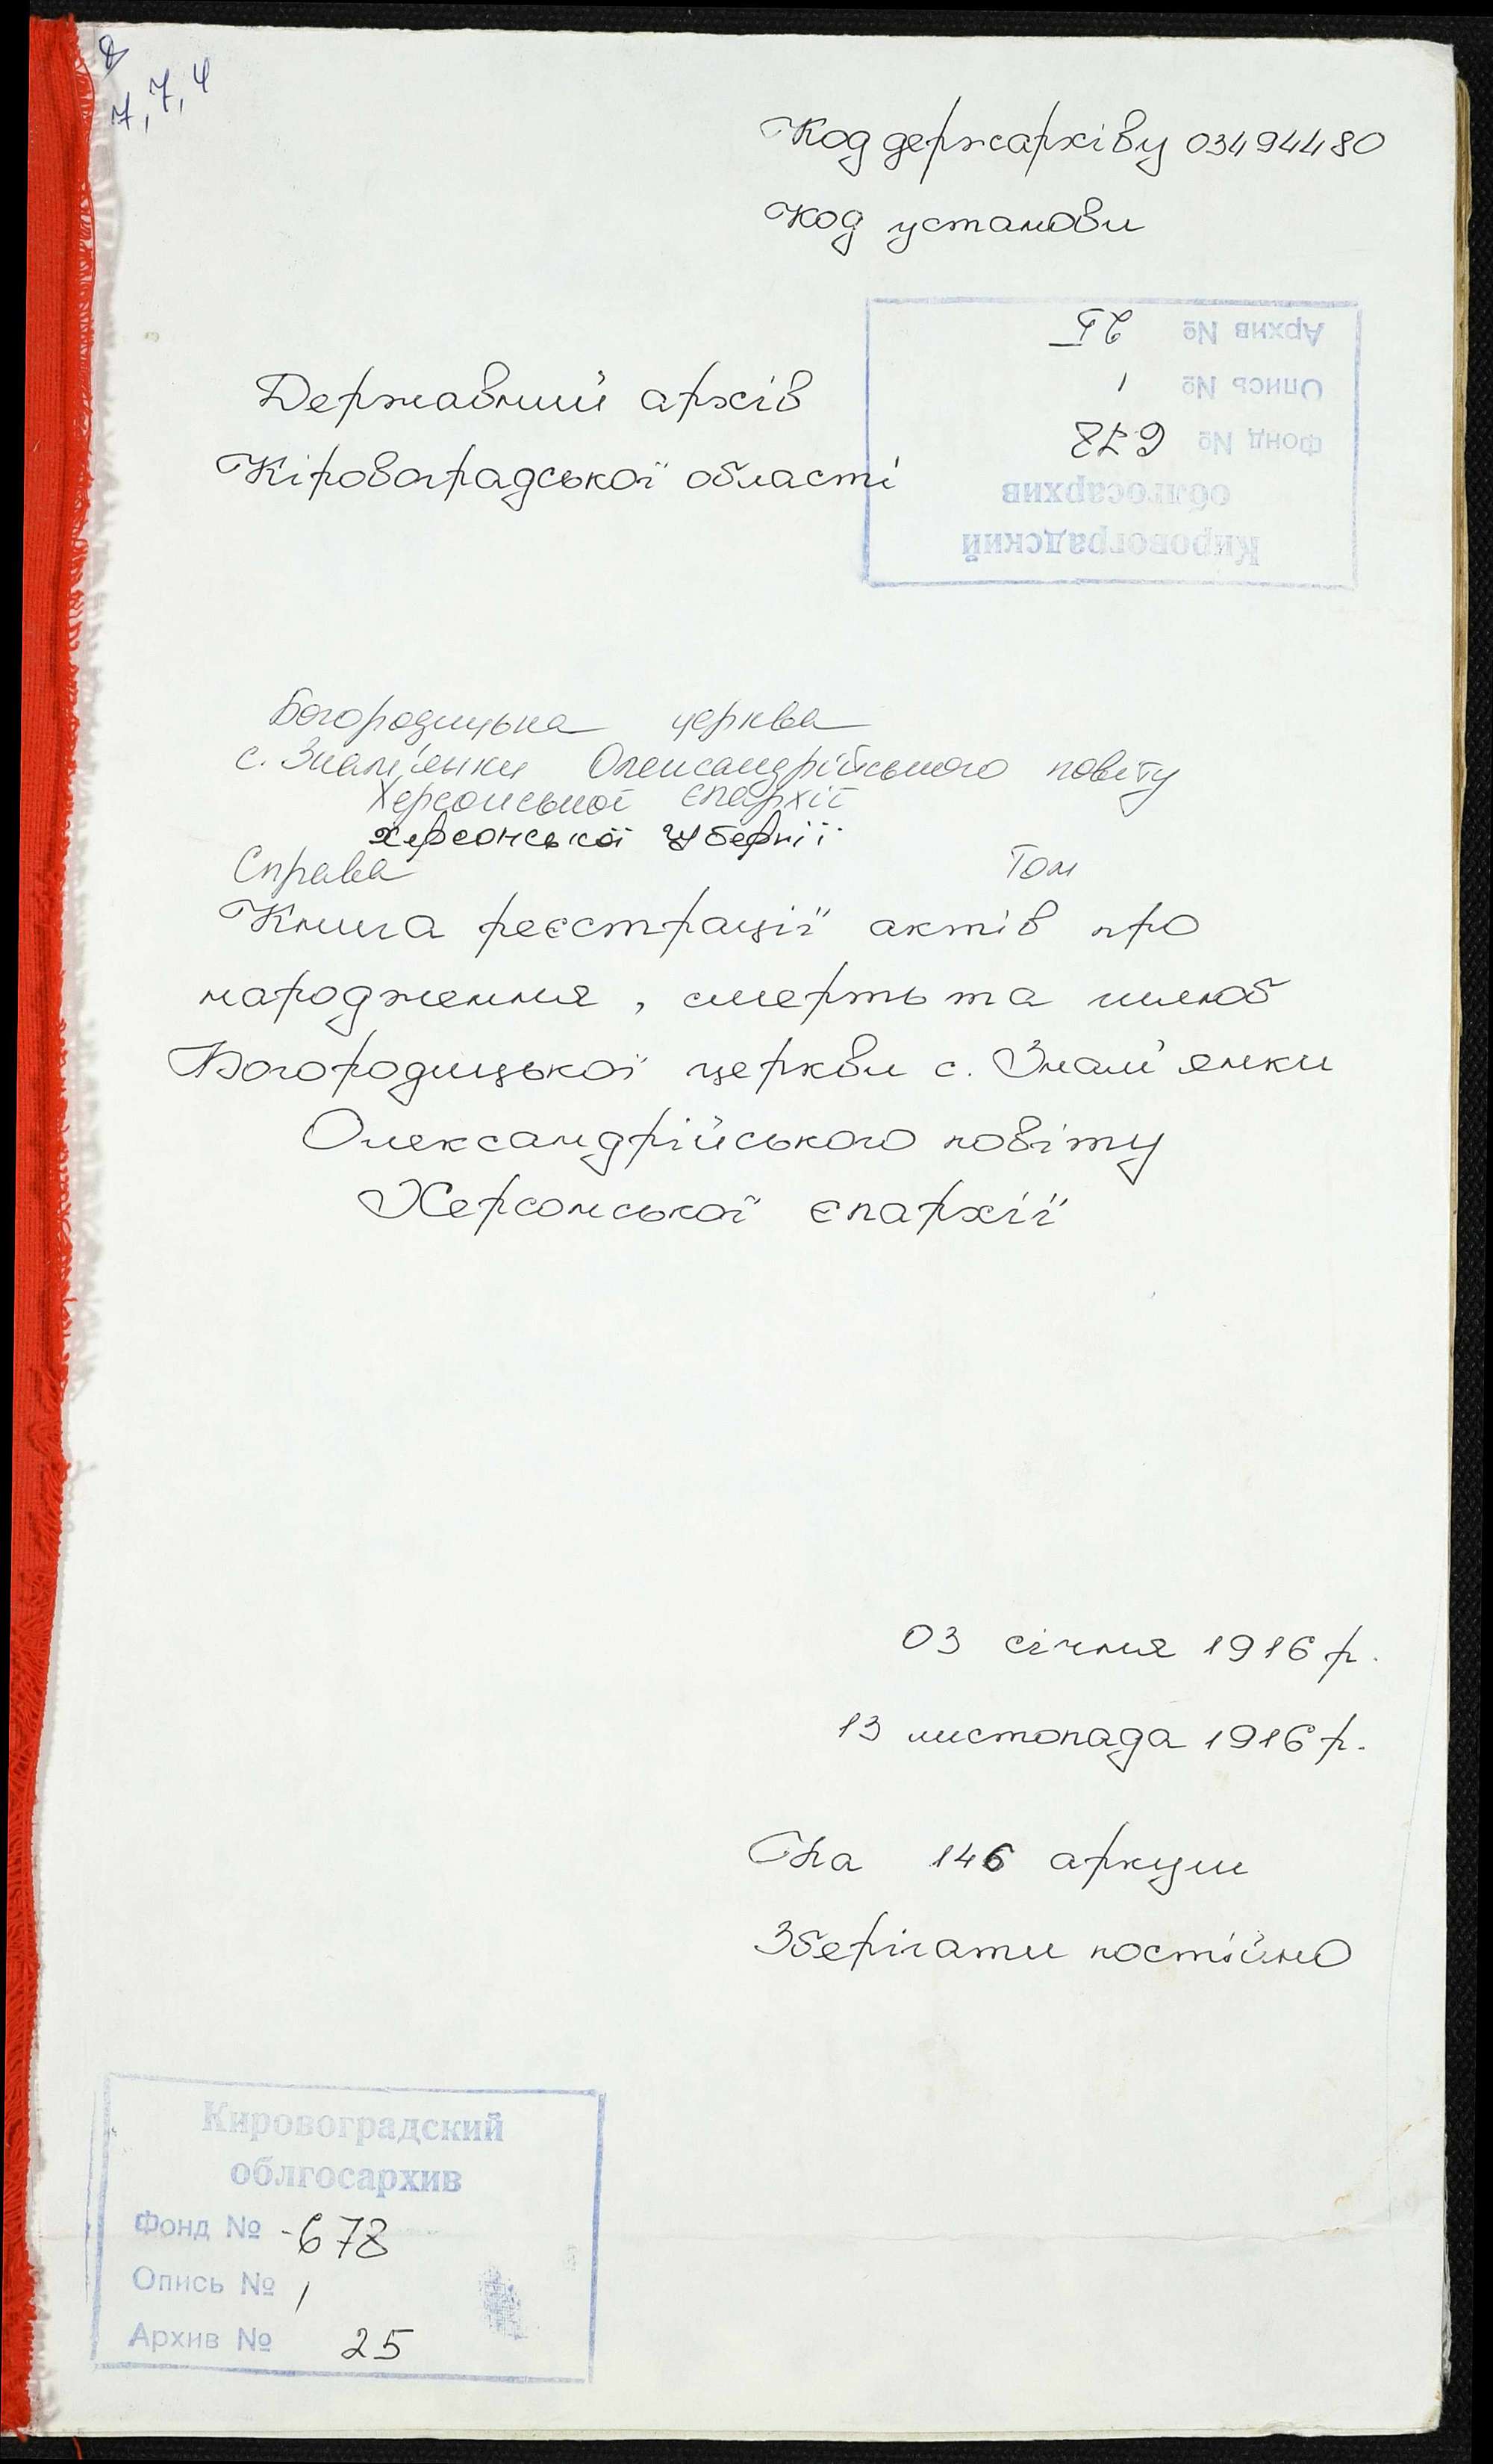 8
7, 7, 4
Код держархіву 03494480
Код установи
Архив № 25
Опись № 1
Фонд № 678
облгосархив
Кировоградский
Державний архів
Кіровоградської області
Богородицька церква
с. Знам'янки Олександрійського повіту
Херсонської єпархії
Херсонської губернії
Справа Том
Книга реєстрації актів про
народження, смерть та шлюб
Богородицької церкви с. Знам'янки
Олександрійського повіту
Херсонської єпархії
03 січня 1916 р.
13 листопада 1916 р.
На 146 аркуш
Зберігати постійно
Кировоградский
облгосархив
Фонд № 678
Опись № 1
Архив № 25